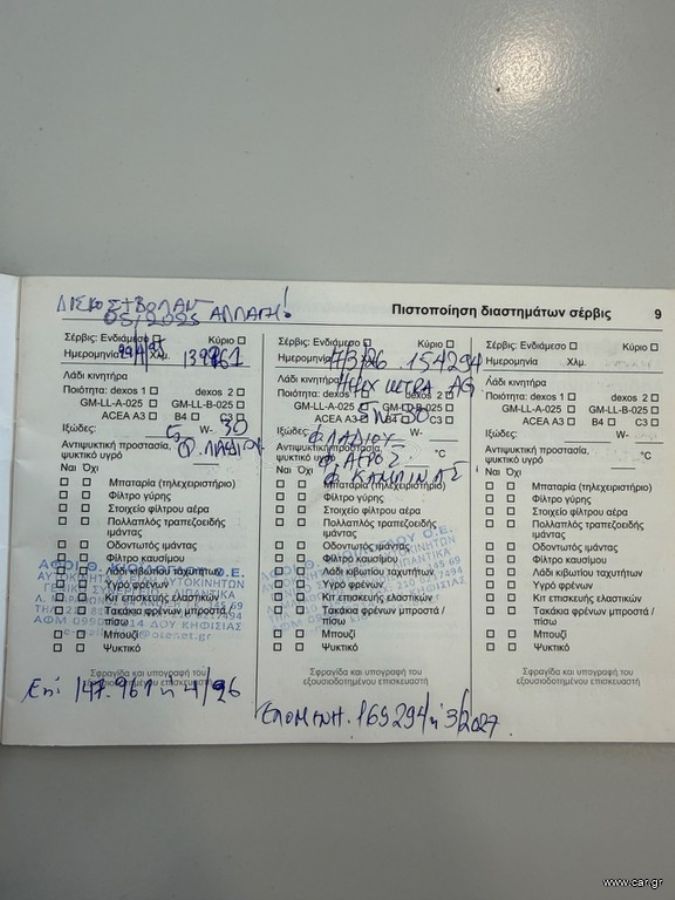 ΔΙΣΚΟ ΣΤ ΒΟΛΑΝ
05/2025 ΑΛΛΑΓΗ!
Πιστοποίηση διαστημάτων σέρβις 9
Σέρβις: Ενδιάμεσο Κύριο
Ημερομηνία Χλμ.
Λάδι κινητήρα
Ποιότητα: dexos 1 dexos 2
GM-LL-A-025 GM-LL-B-025
ACEA A3 B4 C3
Ιξώδες: 5 W- 30
Αντιψυκτική προστασία,
ψυκτικό υγρό
Ναι Όχι
Μπαταρία (τηλεχειριστήριο)
Φίλτρο γύρης
Στοιχείο φίλτρου αέρα
Πολλαπλός τραπεζοειδής
ιμάντας
Οδοντωτός ιμάντας
Φίλτρο καυσίμου
Λάδι κιβωτίου ταχυτήτων
Υγρό φρένων
Κιτ επισκευής ελαστικών
Τακάκια φρένων μπροστά /
πίσω
Μπουζί
Ψυκτικό
Σφραγίδα και υπογραφή του
εξουσιοδοτημένου επισκευαστή
147.961 ή 4/26
Σέρβις: Ενδιάμεσο Κύριο
Ημερομηνία 7/3/26 154294
Λάδι κινητήρα HELIX ULTRA AG
Ποιότητα: dexos 1 dexos 2
GM-LL-A-025 GM-LL-B-025
5W30
ACEA A3 B4 C3
Ιξώδες: W-
Φ ΛΑΔΙΟΥ
Αντιψυκτική προστασία,
ψυκτικό υγρό °C
Φ. ΑΕΡΟΣ
Φ ΚΑΜΠΙΝΑΣ
Ναι Όχι
Μπαταρία (τηλεχειριστήριο)
Φίλτρο γύρης
Στοιχείο φίλτρου αέρα
Πολλαπλός τραπεζοειδής
ιμάντας
Οδοντωτός ιμάντας
Φίλτρο καυσίμου
Λάδι κιβωτίου ταχυτήτων
Υγρό φρένων
Κιτ επισκευής ελαστικών
Τακάκια φρένων μπροστά /
πίσω
Μπουζί
Ψυκτικό
Σφραγίδα και υπογραφή του
εξουσιοδοτημένου επισκευαστή
ΕΠΟΜΕΝΗ. 169294 ή 3/2027
Σέρβις: Ενδιάμεσο Κύριο
Ημερομηνία Χλμ.
Λάδι κινητήρα
Ποιότητα: dexos 1 dexos 2
GM-LL-A-025 GM-LL-B-025
ACEA A3 B4 C3
Ιξώδες: W-
Αντιψυκτική προστασία,
ψυκτικό υγρό °C
Ναι Όχι
Μπαταρία (τηλεχειριστήριο)
Φίλτρο γύρης
Στοιχείο φίλτρου αέρα
Πολλαπλός τραπεζοειδής
ιμάντας
Οδοντωτός ιμάντας
Φίλτρο καυσίμου
Λάδι κιβωτίου ταχυτήτων
Υγρό φρένων
Κιτ επισκευής ελαστικών
Τακάκια φρένων μπροστά /
πίσω
Μπουζί
Ψυκτικό
Σφραγίδα και υπογραφή του
εξουσιοδοτημένου επισκευαστή
www.car.gr